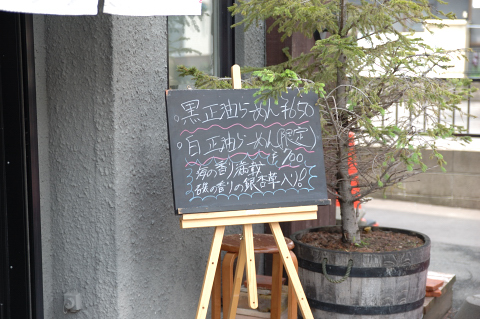 ・黒正油らーめん¥650
・白正油らーめん(限定)
は¥700
海の香り満載
磯の香りの銀杏草入り!!